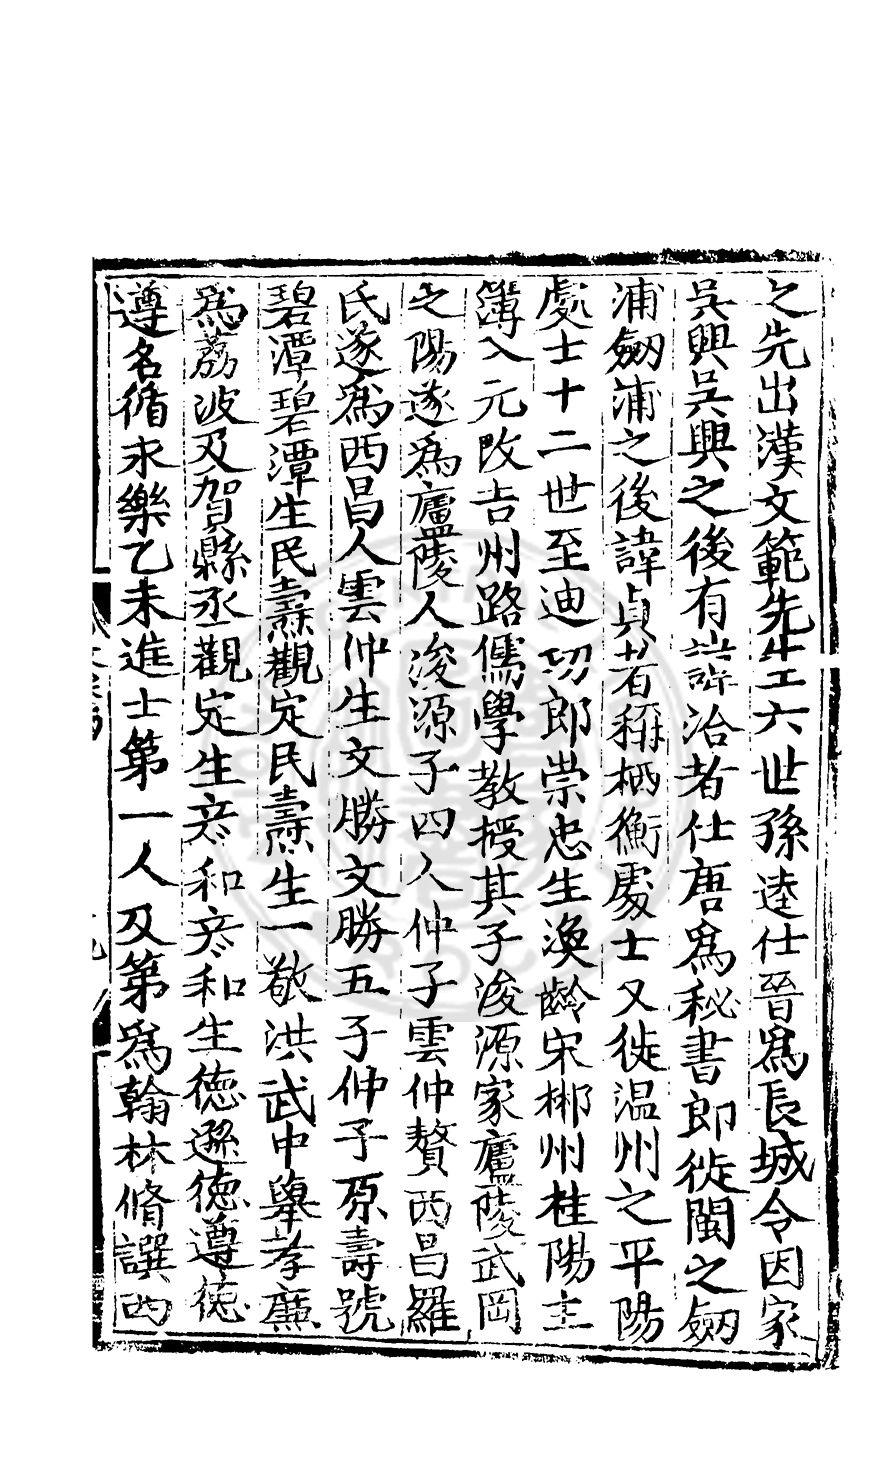 之先出漢文範先生六世孫逵仕晉爲長城令因家
吳興吳興之後有諱洽者仕唐爲秘書郎徙閩之劒
浦劒浦之後諱貞者稱栖衡處士又徙温州之平陽
處士十二世至迪功郎崇忠生渙齡宋郴州桂陽主
簿入元改吉州路儒學教授其子浚源家廬陵武岡
之陽遂爲廬陵人浚源子四人仲子雲仲贅西昌羅
氏遂爲西昌人雲仲生文勝文勝五子仲子原壽號
碧潭碧潭生民燾觀定民燾生一敬洪武中舉孝廉
爲荔波及賀縣丞觀定生彦和彦和生德遜德遵德
遵名循永樂乙未進士第一人及第爲翰林脩譔西